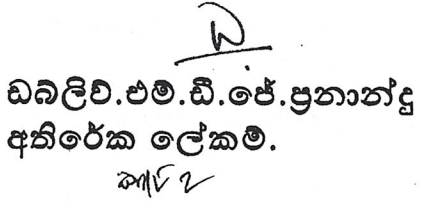 ඩබ්ලිව්.එම්.ඩී.ජේ.ප්‍රනාන්දු
අතිරේක ලේකම්.